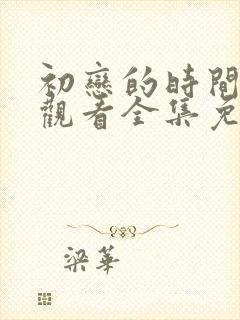 初戀的時間
觀看全集免
梁華